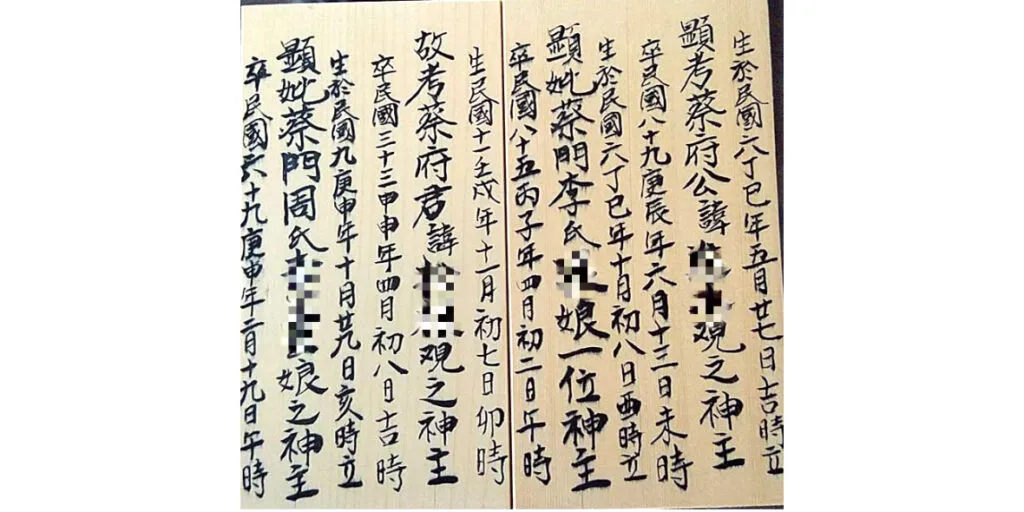 生於民國六丁巳年五月廿七日吉時立
顯考蔡府公諱覌之神主
卒民國八十九庚辰年六月十三日未時
生於民國六丁巳年十月初八日酉時立
顯妣蔡門李氏娘一位神主
卒民國八十五丙子年四月初二日午時
生民國十一壬戌年十一月初七日卯時
故考蔡府君諱覌之神主
卒民國三十三甲申年四月初八日吉時
生於民國九庚申年十月廿九日亥時立
顯妣蔡門周氏娘之神主
卒民國六十九庚申年二月十九日午時